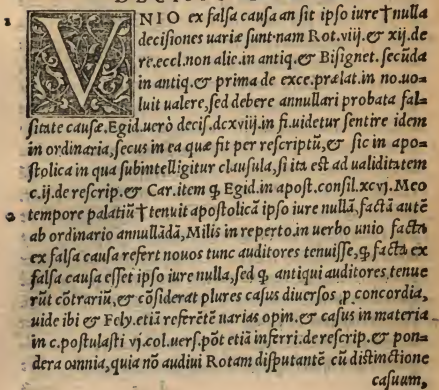 1 VNIO ex falsa causa an sit ipso iure†nulla
decisiones uariæ sunt·nam Rot.viij.& xij.de
re.eccl.non alie.in antiq.& Bisignet.secūda
in antiq.& prima de exce.prælat.in no.uo=
luit ualere,sed debere annullari probata fal=
sitate causæ.Egid.uerò decis.dcxviij.in fi.uidetur sentire idem
in ordinaria,secus in ea quæ fit per rescriptū,& sic in apo=
stolica in qua subintelligitur clausula,si ita est ad ualiditatem
c.ij.de rescrip.& Car.item q̃ Egid.in apost.consil.xcvj. Meo
2 tempore palatiū†tenuit apostolicā ipso iure nullā,factā autē
ab ordinario annullādā, Milis in reperto.in uerbo unio facta
ex falsa causa refert nouos tunc auditores tenuisse,q̃ facta ex
falsa causa esset ipso iure nulla,sed q̃ antiqui auditores,tenue
rūt cōtrariū,& cōsiderat plures casus diuersos ,p concordia,
uide ibi & Fely.etiā referētē uarias opin.& casus in materia
in c.postulasti vj.col.uers.pōt etiā inferri.de rescrip.& pon=
dera omnia,quia nō audiui Rotam disputantē cū distinctione
casuum,